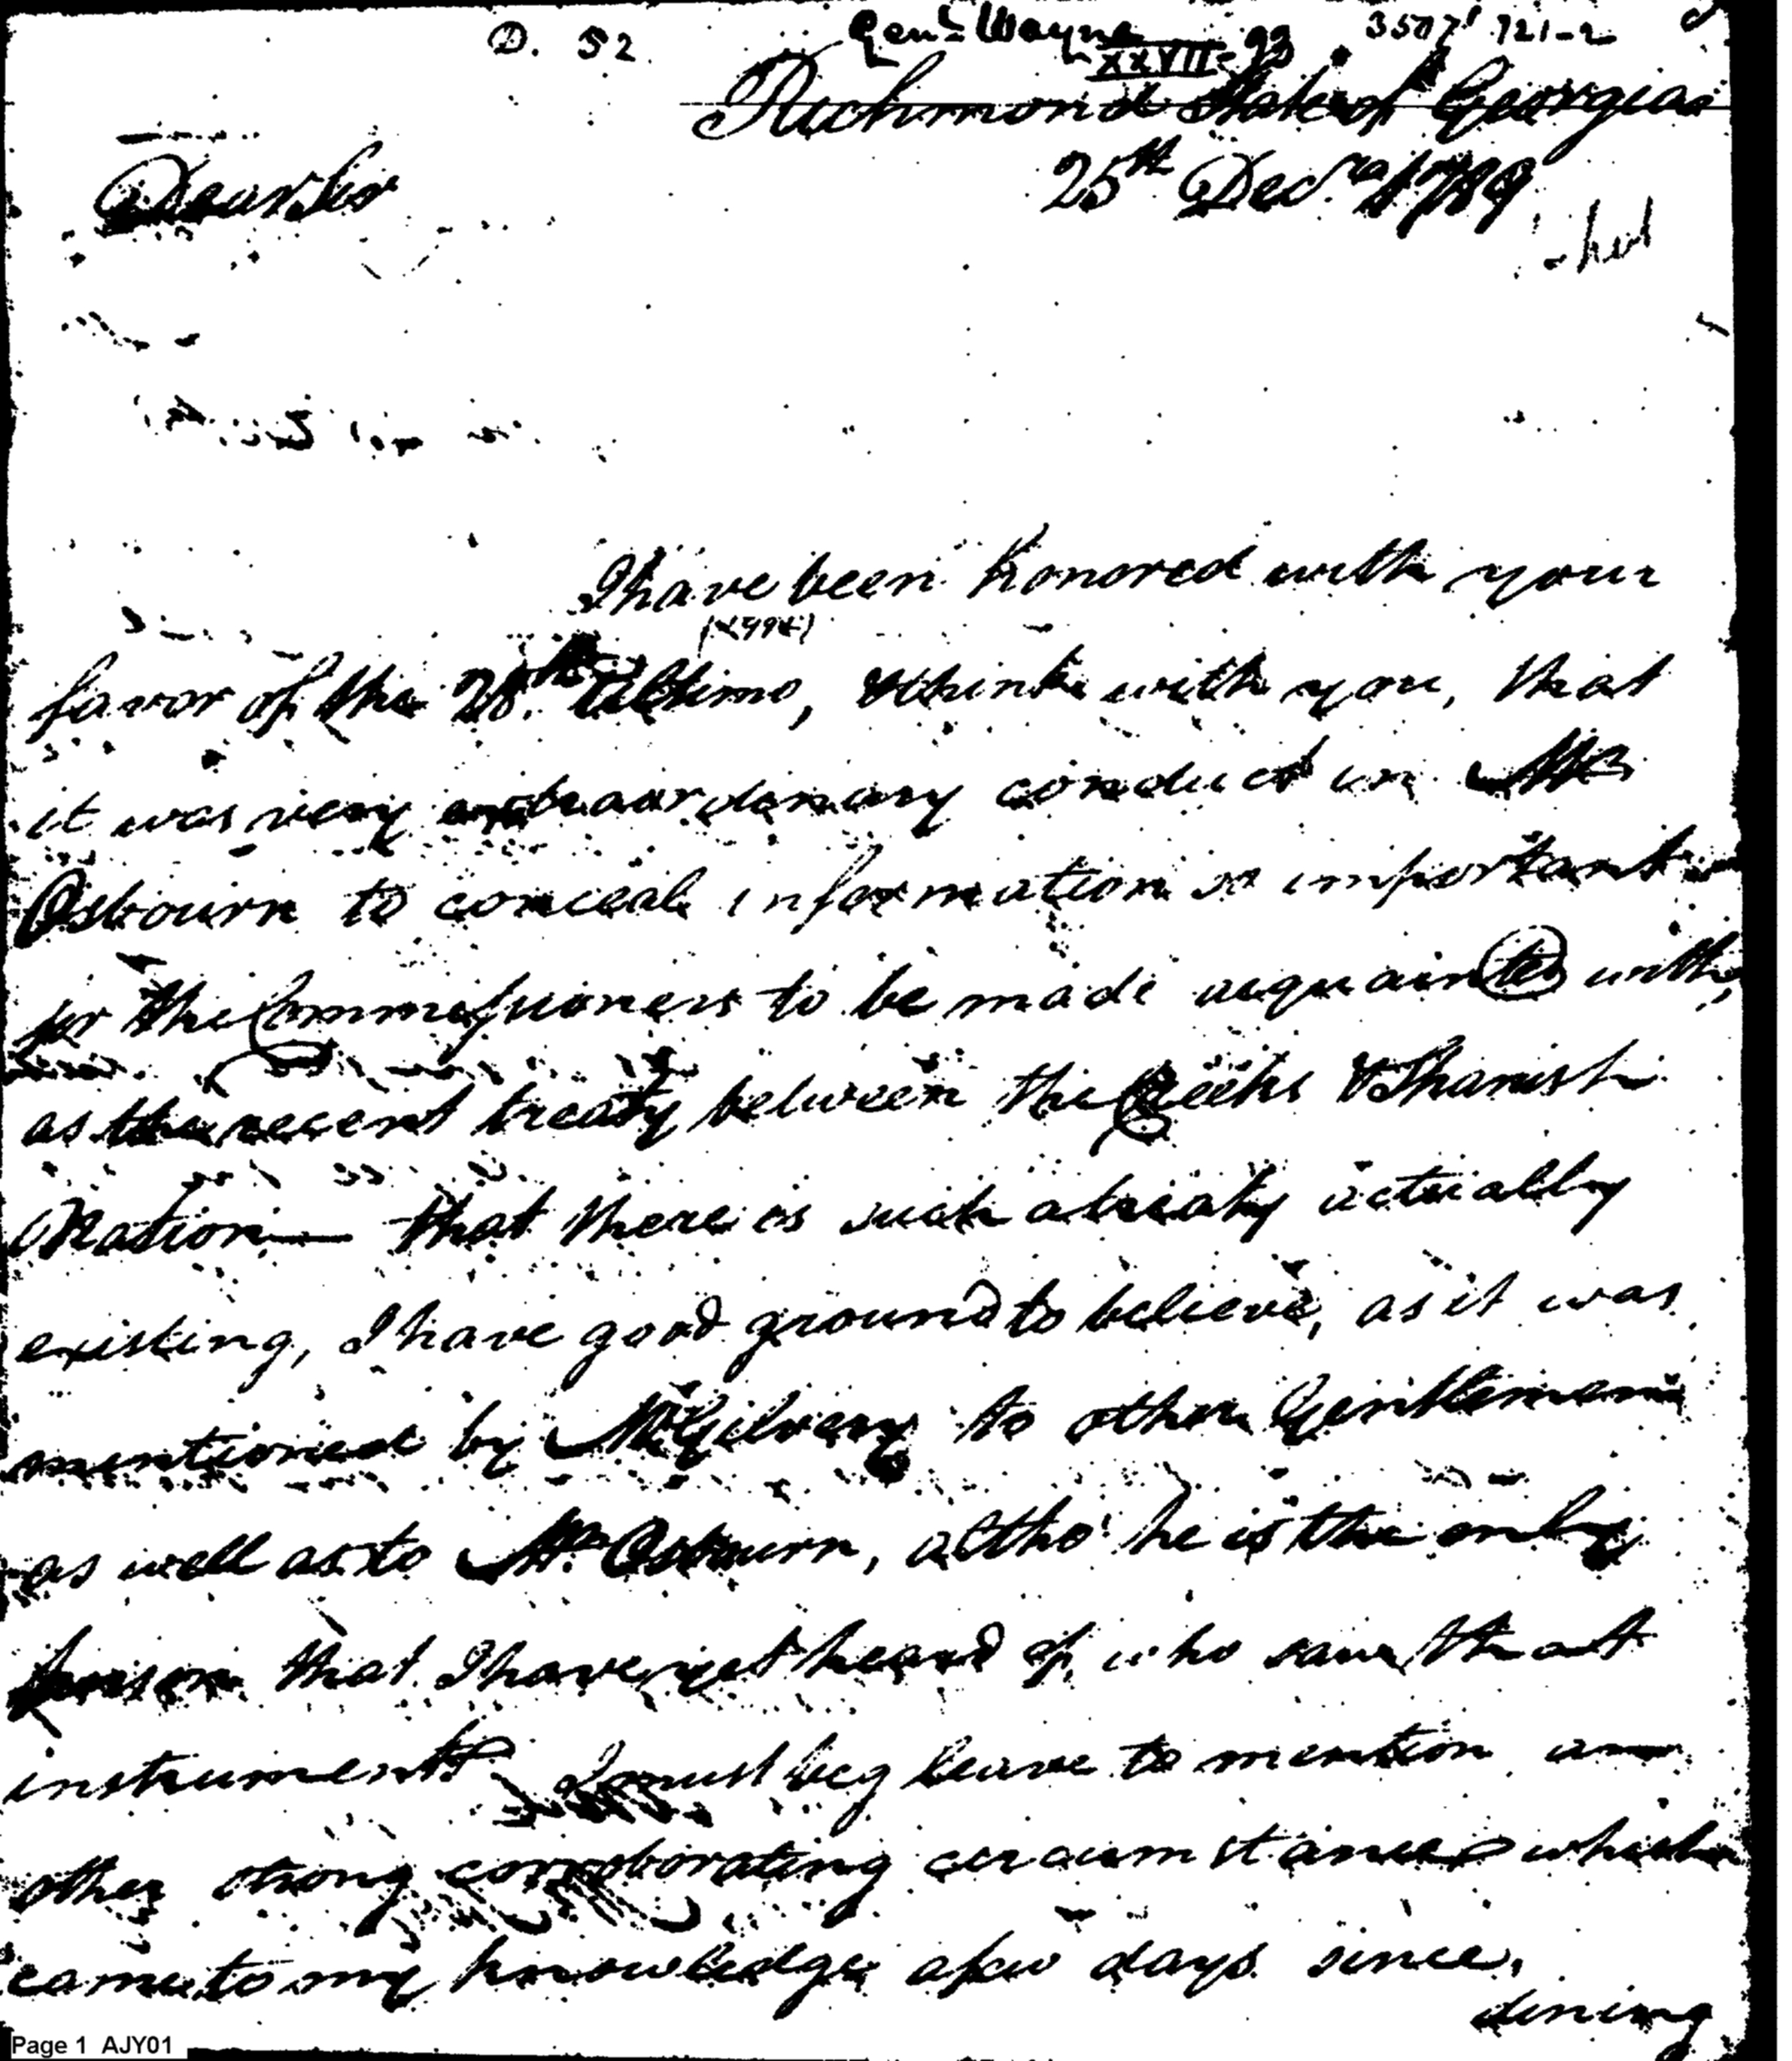 D. 52
Genl. Wayne
XXVII-93
3507 721-2
Richmond State of Georgia
25th Decr. 1789
Dear Sir
I have been honored with your
favor of the 28th. Ultimo, & think with you, that
it was very extraordinary conduct in Mr.
Osbourn to conceal information so important
for the Commissioners to be made acquainted with,
as the recent treaty between the Creeks & Spanish
Nation — that there is such a treaty actually
existing, I have good ground to believe, as it was
mentioned by McGilvery to other Gentlemen
as well as to Mr. Osbourn, altho' he is the only
person that I have yet heard of, who saw that
instrument. I must beg leave to mention an
other strong corroborating circumstance which
came to my knowledge a few days since,
dining
Page 1 AJY01